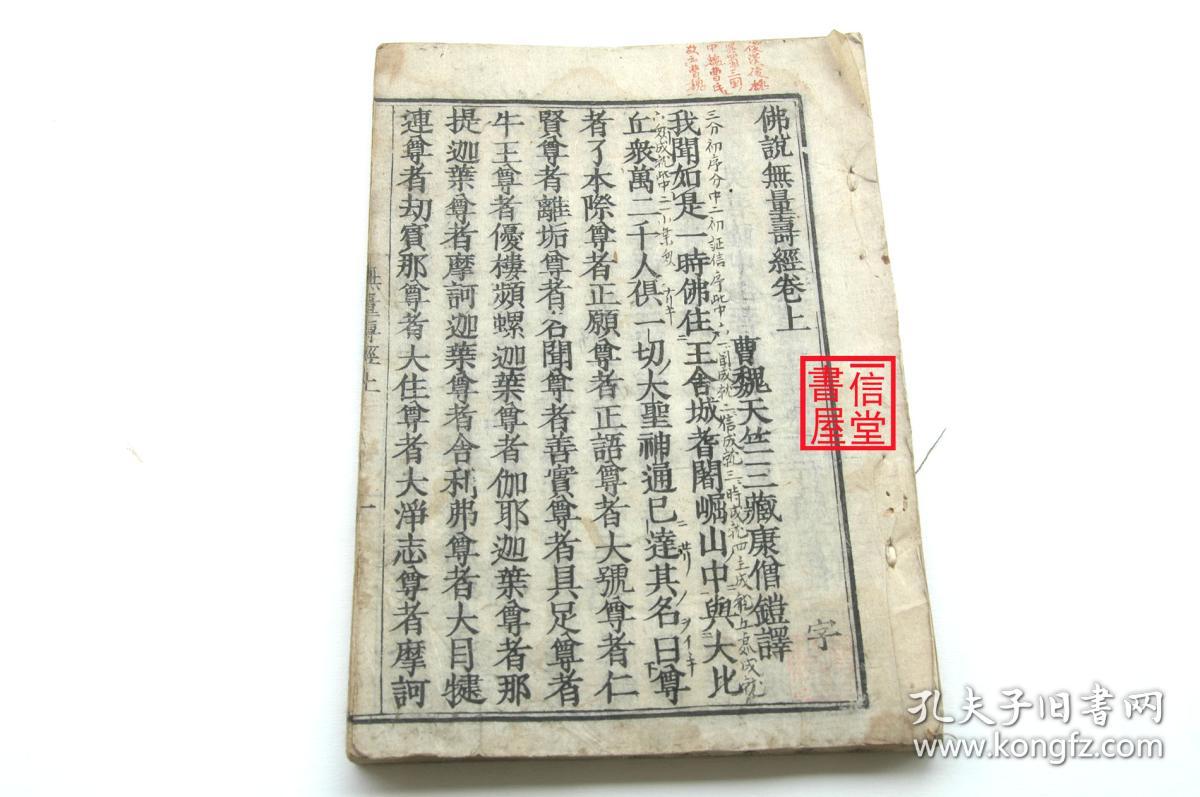 佛說無量壽經卷上
曹魏天竺三藏康僧鎧譯
三分初序分中二初証信序此中六一聞成就二信成就三時成就四主成就
我聞如是一時佛住王舍城耆闍崛山中與大比
丘衆萬二千人俱一切大聖神通已達其名曰尊
者了本際尊者正願尊者正語尊者大號尊者仁
賢尊者離垢尊者名聞尊者善實尊者具足尊者
牛王尊者優樓頻螺迦葉尊者伽耶迦葉尊者那
提迦葉尊者摩訶迦葉尊者舍利弗尊者大目犍
連尊者劫賓那尊者大住尊者大淨志尊者摩訶
無量壽經上
一
字
一信堂
書屋
孔夫子旧书网
www.kongfz.com